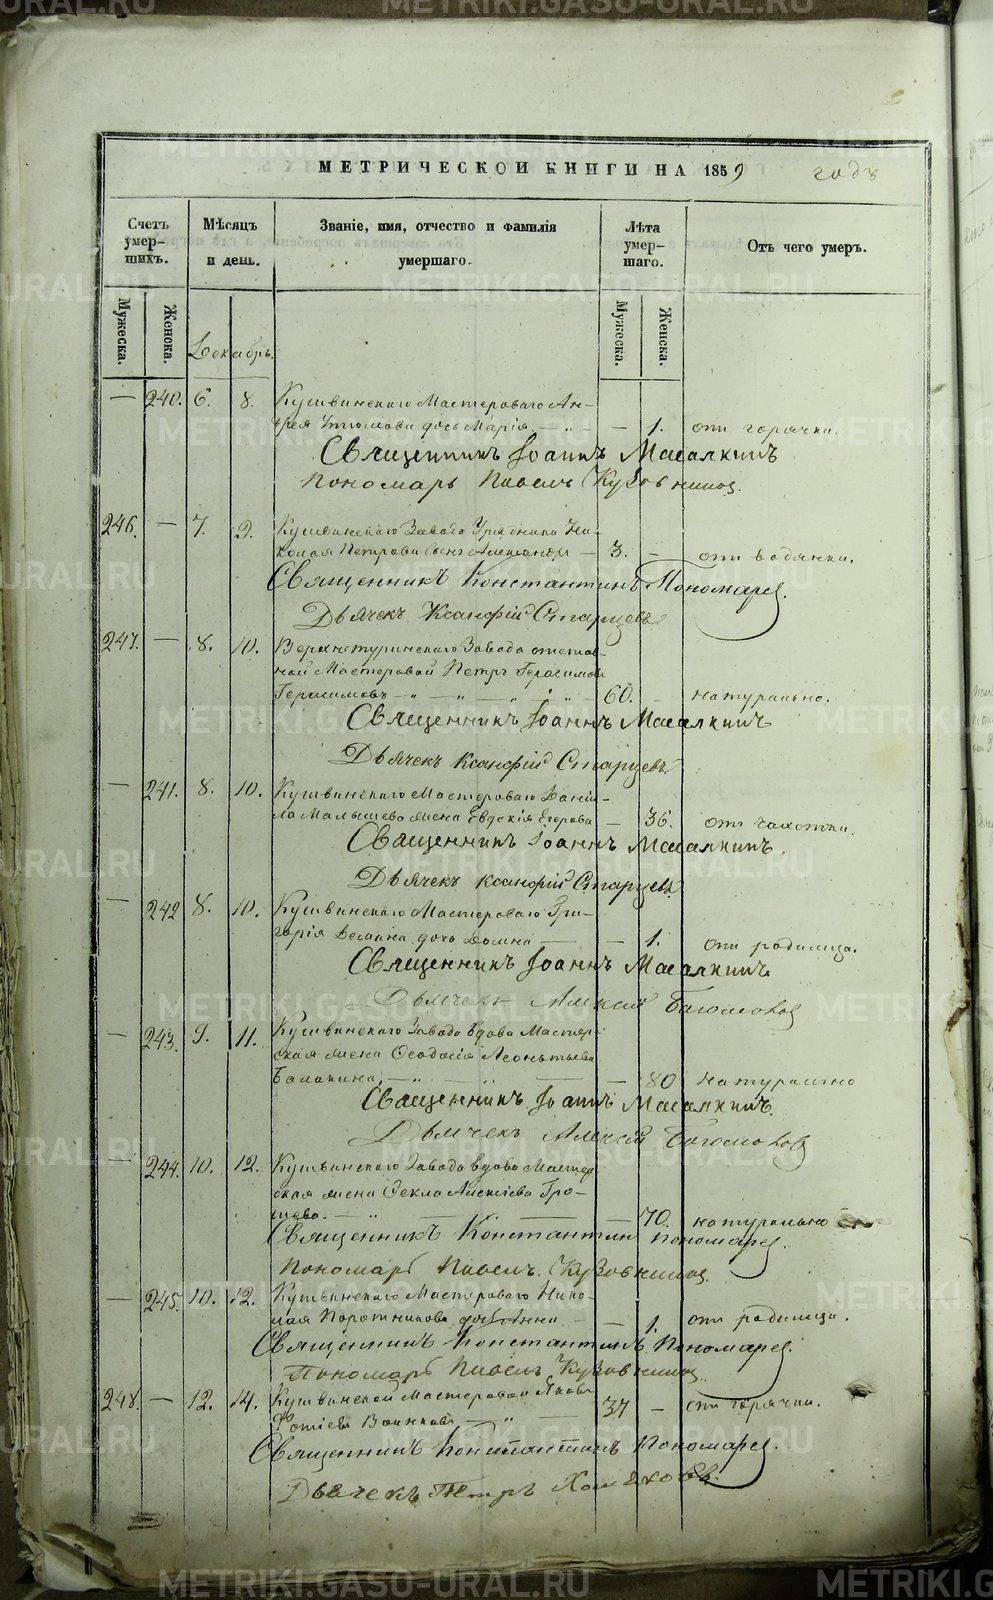 МЕТРИЧЕСКОЙ КНИГИ НА 1859 годъ
Счетъ умер-шихъ.
Мѣсяцъ и день.
Званіе, имя, отчество и фамилія умершаго.
Лѣта умер-шаго.
Отъ чего умеръ.
Мужеска.
Женска.
Мужеска.
Женска.
Декабрь.
— 240. 6. 8. Кушвинскаго Мастероваго Ан-
дрея дочь Марія — „ — — 1. отъ горячки.
Священникъ Іоаннъ Масалкинъ
Пономарь Павелъ Кузовниковъ.
246. — 7. 9. Кушвинскаго Завода Урядника Ни-
колая Петрова сынъ Александръ — 3. — отъ водянки.
Священникъ Константинъ Пономаревъ.
Дьячекъ Ксанфій Старцевъ
247. — 8. 10. Верхнетуринскаго Завода отстав-
ной Мастеровой Петръ Герасимовъ
Герасимовъ — „ — „ „ 60. — натурально.
Священникъ Іоаннъ Масалкинъ
Дьячекъ Ксанфій Старцевъ
— 241. 8. 10. Кушвинскаго Мастероваго Дании-
ла Малышева жена Евдокія Егорова — 36. отъ чахотки.
Священникъ Іоаннъ Масалкинъ.
Дьячекъ Ксанфій Старцевъ
— 242 8. 10. Кушвинскаго Мастероваго Гри-
горія Демина дочь Домна — — 1. отъ родимца.
Священникъ Іоаннъ Масалкинъ
Дьячекъ Алексій Богомоловъ
— 243. 9. 11. Кушвинскаго Завода вдова Мастер-
ская жена Ѳеодосія Леонтьева
Балакина — „ — „ — — 80 натурально
Священникъ Іоаннъ Масалкинъ.
Дьячекъ Алексій Богомоловъ
— 244. 10. 12. Кушвинскаго Завода вдова Мастер-
ская жена Ѳекла Алексіева Гро-
шева. — „ — — 70. натурально
Священникъ Константинъ Пономаревъ.
Пономарь Павелъ Кузовниковъ.
— 245. 10. 12. Кушвинскаго Мастероваго Нико-
лая Поротникова дочь Анна — — 1. отъ родимца.
Священникъ Константинъ Пономаревъ.
Пономарь Павелъ Кузовниковъ.
248. — 12. 14. Кушвинской Мастеровой Яковъ
Фотіевъ Воинковъ — „ — 37 — отъ горячки.
Священникъ Константинъ Пономаревъ.
Дьячекъ Петръ Хомяковъ.
METRIKI.GASO-URAL.RU